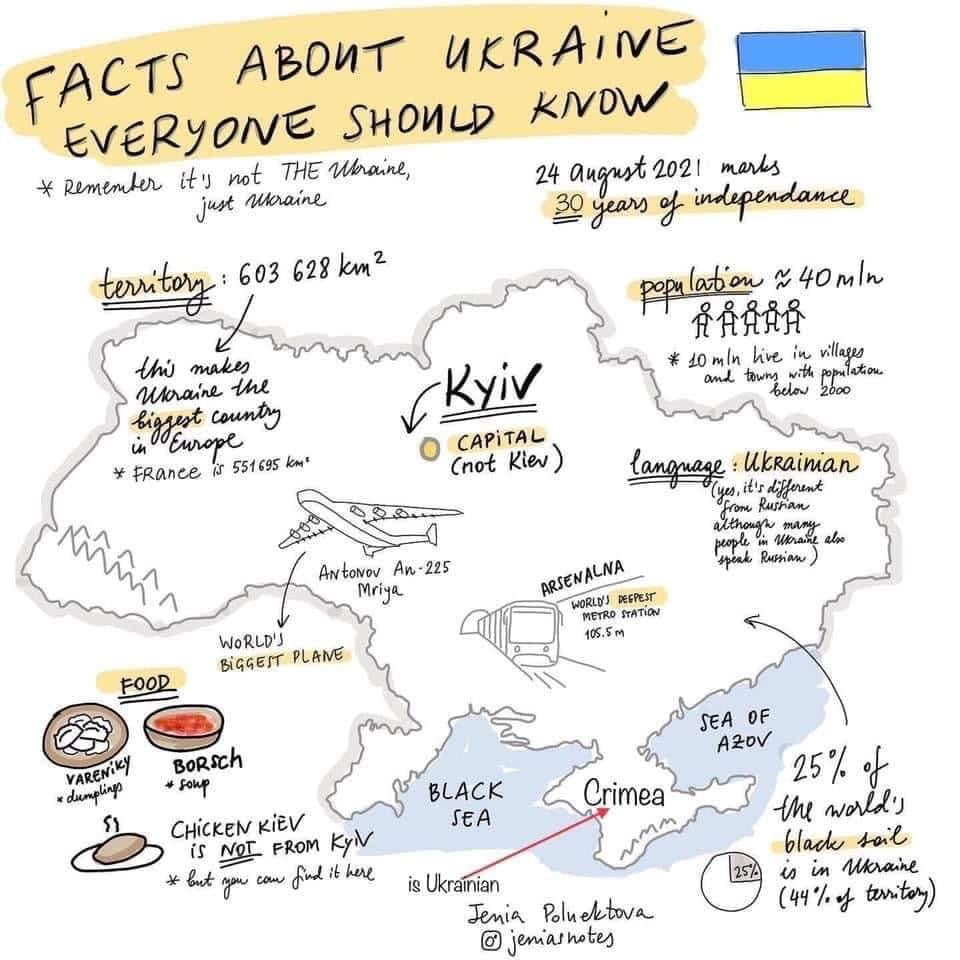 FACTS ABOUT UKRAINE
EVERYONE SHOULD KNOW
* Remember it's not THE Ukraine,
just Ukraine
24 august 2021 marks
30 years of independance
territory : 603 628 km²
population ≈ 40 mln
* 10 mln live in villages
and towns with population
below 2000
this makes
Ukraine the
biggest country
in Europe
* FRance is 551 695 km²
Kyiv
CAPITAL
(not Kiev)
language : UKRAINIAN
(yes, it's different
from Russian
although many
people in Ukraine also
speak Russian)
Antonov An-225
Mriya
WORLD'S
BIGGEST PLANE
ARSENALNA
WORLD'S DEEPEST
METRO STATION
105.5 m
FOOD
VARENIKY
* dumplings
BORSCH
* soup
CHICKEN KIEV
IS NOT FROM KYIV
* but you can find it here
BLACK
SEA
SEA OF
AZOV
Crimea
is Ukrainian
25% of
the world's
black soil
is in Ukraine
(44% of territory)
25%
Jenia Poluektova
jeniasnotes